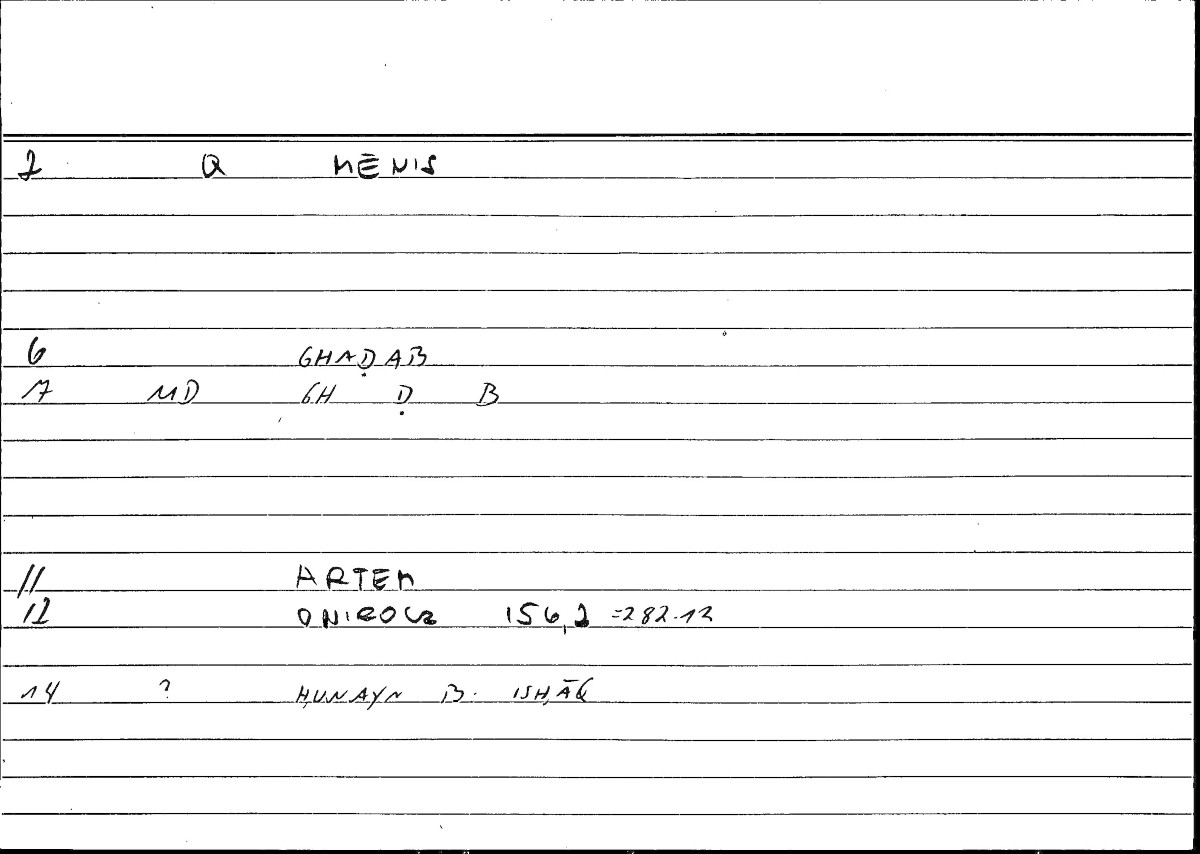 2 Q MĒNIS
6 GHAḌAB
7 MD GH Ḍ B
11 ARTEM
12 ONIROCR 156,2 =282.12
14 ? ḤUNAYN B. ISḤĀQ